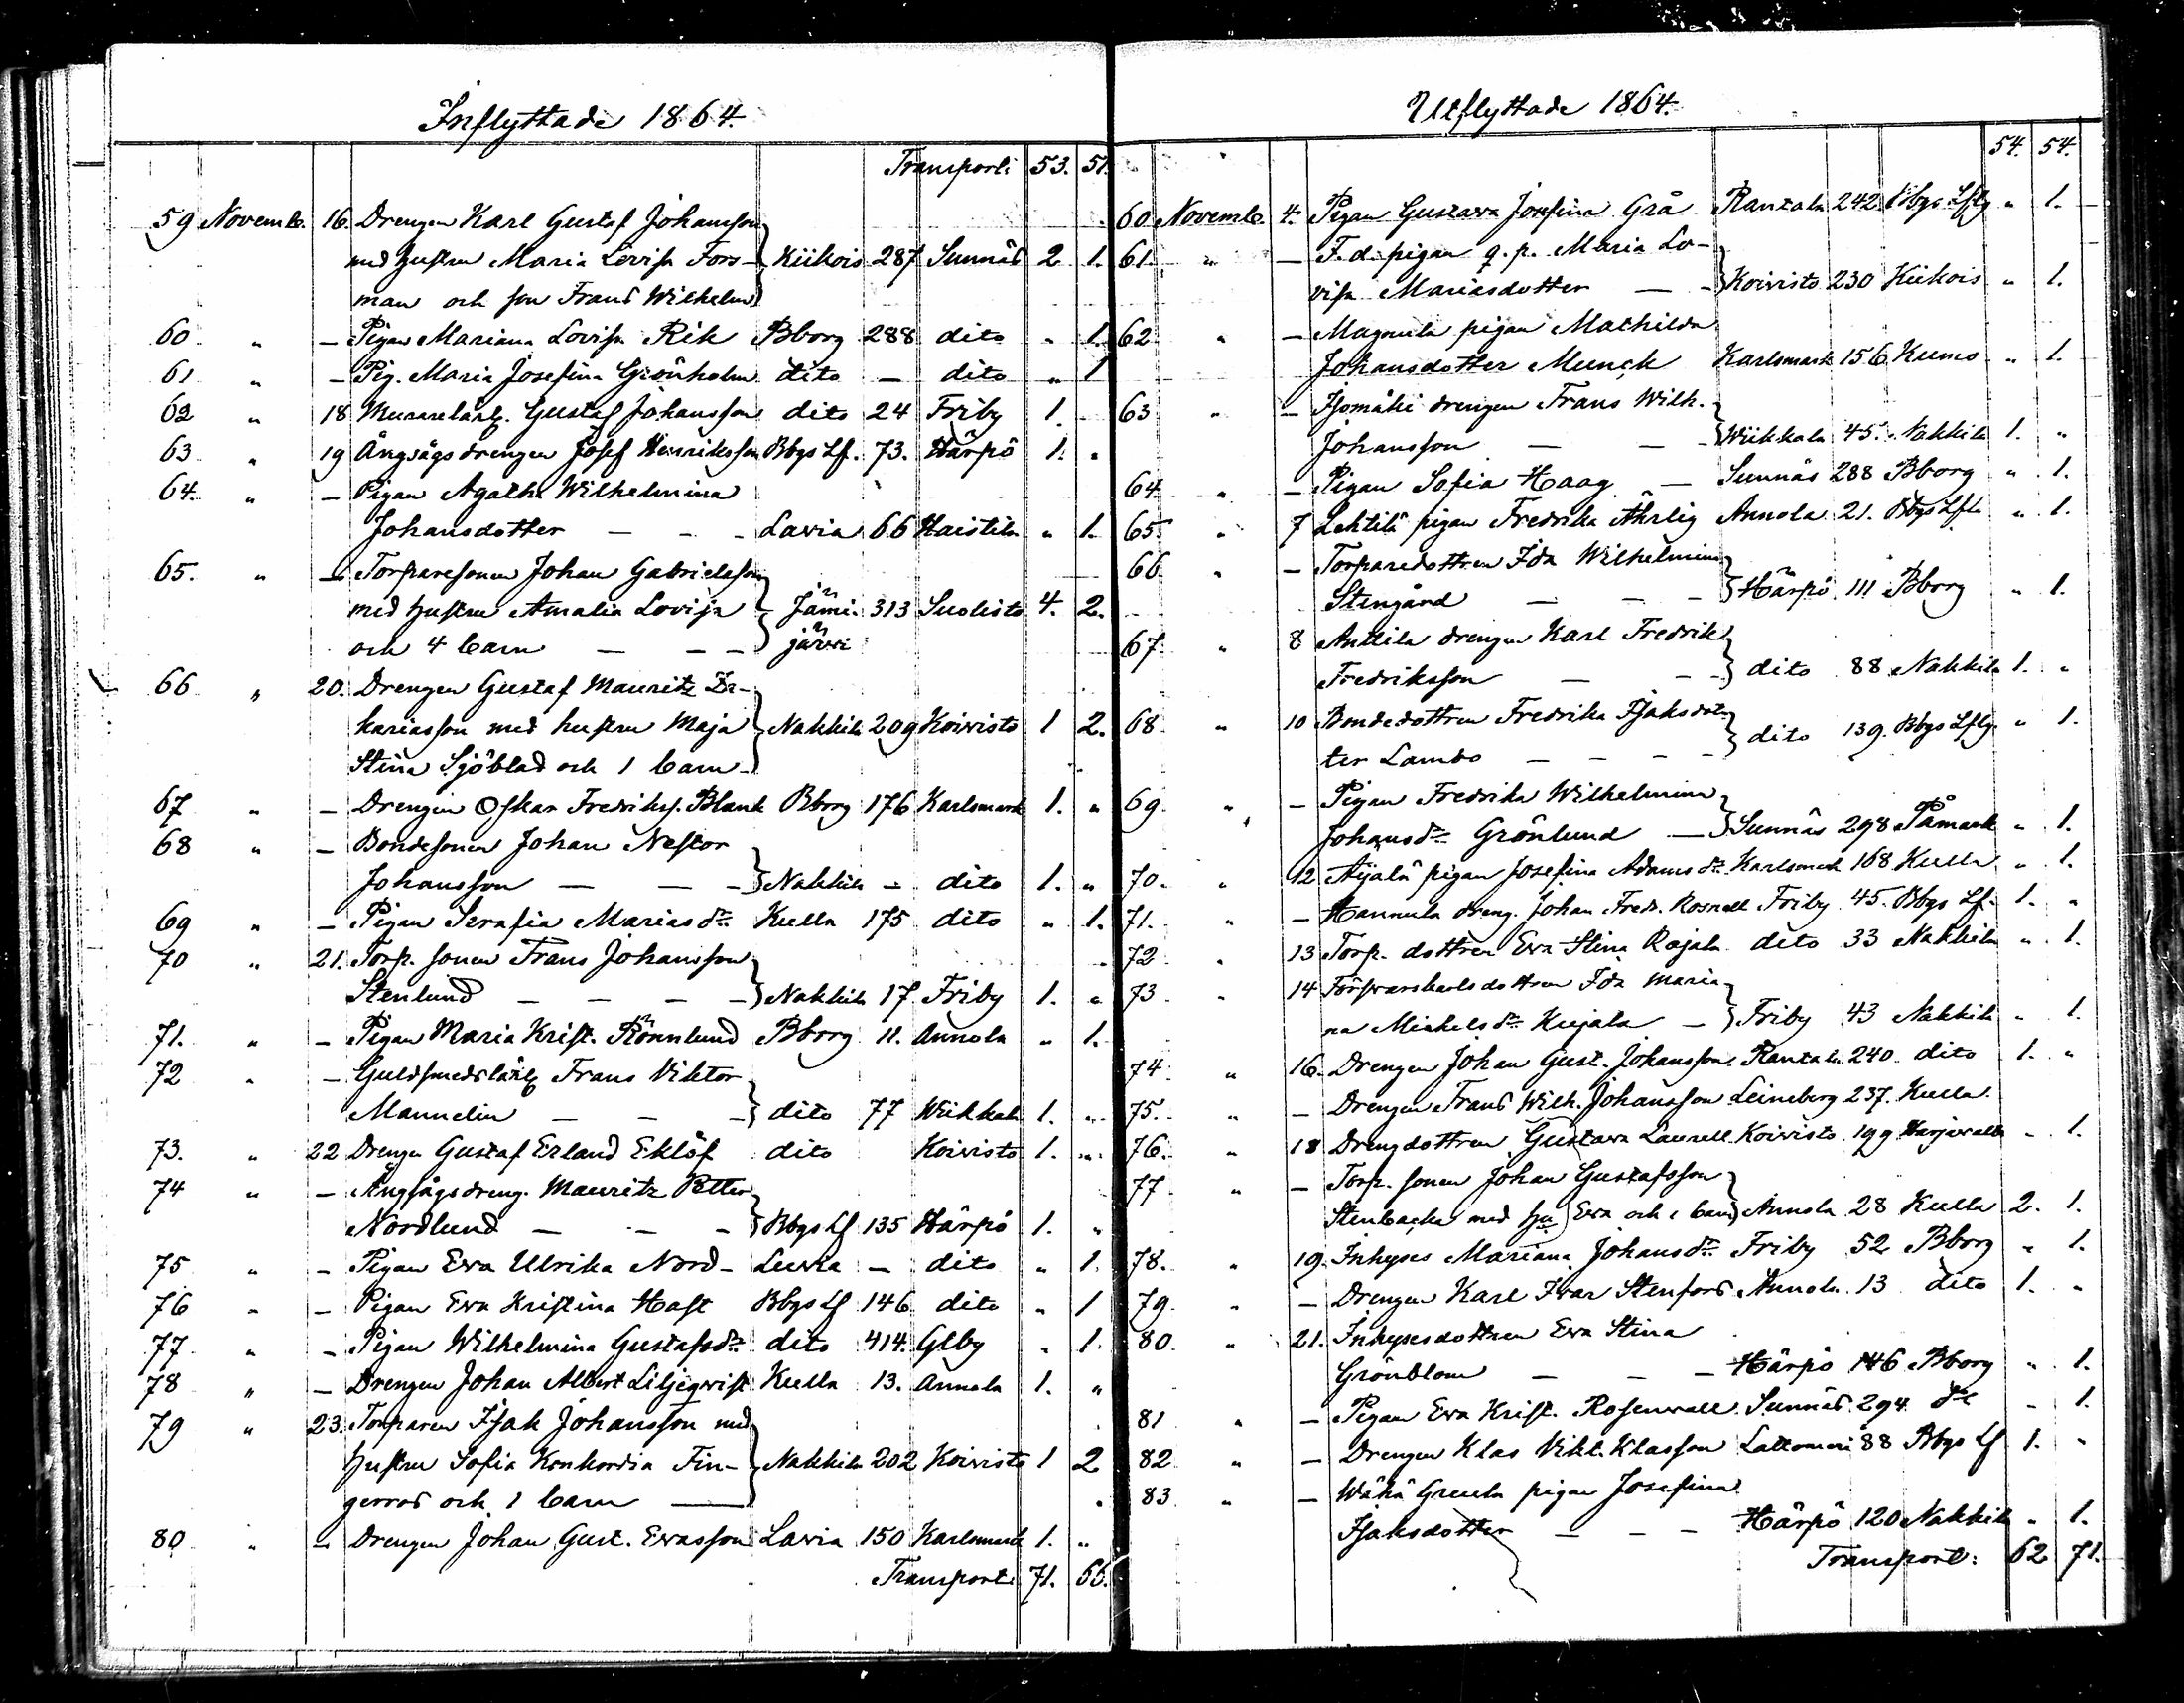 Inflyttade 1864.
Transport: 53. 51.
59 Novemb. 16. Drengen Karl Gustaf Johansson
med hustru Maria Lovisa Fors- Kiikois 287 Sunnäs 2 1.
man och son Frans Wilhelm
60 " - Pigan Mariana Lovisa Rik Bborg 288 dito " 1.
61 " - Pig. Maria Josefina Grönholm dito - dito " 1
62 " 18 Murarelärl. Gustaf Johansson dito 24 Friby 1. -
63 " 19 Ångsågsdrengen Josef Henriksson Bbgs Lf. 73. Härpö 1. "
64. " - Pigan Agatha Wilhelmina
Johansdotter - - - Lavia 66 Haistila " 1.
65. " - Torparesonen Johan Gabrielsson
med hustru Amalia Lovisa Jämi- 313 Suolisto 4. 2.
och 4 barn - - - järvi
66 " 20. Drengen Gustaf Mauritz Za-
kariasson med hustru Maja Nakkila 209 Koivisto 1 2.
Stina Sjöblad och 1 barn
67 " - Drengen Oskar Fredrikss. Blank Bborg 176 Karlsmark 1. "
68 " - Bondesonen Johan Nestor
Johansson - - - Nakkila - dito 1. "
69 " - Pigan Serafia Mariasdr Kulla 175 dito " 1.
70 " 21. Torp. sonen Frans Johansson
Stenlund - - - - Nakkila 17 Friby 1. "
71. " - Pigan Maria Krist. Rönnlund Bborg 11. Annola " 1.
72 " - Guldsmedslärl Frans Viktor
Mannelin - - - dito 77 Wiikkala 1. "
73. " 22 Drengen Gustaf Erland Eklöf dito Koivisto 1. "
74 " - Ångsågsdreng. Mauritz Petter
Nordlund - - - Bbgs Lf 135 Härpö 1. "
75 " - Pigan Eva Ulrika Nord- Luvia - dito " 1.
76 " - Pigan Eva Kristina Hast Bbgs Lf 146 dito " 1
77 " - Pigan Wilhelmina Gustafsdr dito 414. Glby " 1.
78 " - Drengen Johan Albert Liljeqvist Kulla 13. Annola 1. "
79 " 23. Torparen Isak Johansson med
hustru Sofia Konkordia Fin- Nakkila 202 Koivisto 1 2
gerroos och 1 barn -
80 " - Drengen Johan Gust. Evasson Lavia 150 Karlsmark 1. "
Transport: 71. 66.
Utflyttade 1864.
54. 54.
60 Novemb. 4. Pigan Gustava Josefina Grå Rantala 242. Bbgs Lflg " 1.
61. " - F. d. pigan q. p. Maria Lo-
visa Mariasdotter - - Koivisto 230 Kiikois " 1.
62 " - Magnula pigan Mathilda
Johansdotter Munck Karlsmark 156 Kumo " 1.
63 " - Isomäki drengen Frans Wilh.
Johansson - - Wiikkala 45. Nakkila 1. "
64 " - Pigan Sofia Haag - Sunnäs 288 Bborg " 1.
65 " 7 Lehtilä pigan Fredrika Ährlig Annola 21. Bbgs Lfl. " 1.
66 " - Torparedottren Ida Wilhelmina
Stengård - - - Härpö 111 Bborg " 1.
67 " 8 Anttila drengen Karl Fredrik
Fredriksson - - dito 88 Nakkila 1. "
68 " 10 Bondedottren Fredrika Isaksdot-
ter Lambo - - - dito 139. Bbgs Lflg. " 1.
69 " - Pigan Fredrika Wilhelmina
Johansdr Grönlund - Sunnäs 298 Påmark " 1.
70. " 12 Äijälä pigan Josefina Adamsdr Karlsmark 168 Kulla " 1.
71. " - Hannula dreng. Johan Fredr. Rosnell Friby 45. Bbgs Lf. 1. "
72 " 13 Torp. dottren Eva Stina Rajala dito 33 Nakkila " 1.
73 " 14 Försvarskarlsdottren Ida Maria-
na Mickelsdr Kujala - Friby 43 Nakkila " 1.
74 " 16. Drengen Johan Gust. Johansson Rantala 240. dito 1. "
75. " - Drengen Frans Wilh. Johansson Leineberg 237. Kulla.
76. " 18 Drengdottren Gustava Laurell Koivisto 199 Harjavalta " 1.
77 " - Torp. sonen Johan Gustafsson
Stenbacka med hu Eva och 1 barn Annola 28 Kulla 2. 1.
78. " 19. Inhyses Mariana Johansdr Friby 52 Bborg " 1.
79 " - Drengen Karl Ivar Stenfors Annola 13 dito 1. "
80. " 21. Inhysesdottren Eva Stina
Grönblom - - - Härpö 146 Bborg " 1.
81 " - Pigan Eva Krist. Rosenwall Sunnäs 294 do " 1.
82 " - Drengen Klas Vikt. Klasson Lattomeri 88 Bbgs Lf 1. "
83 " - Wähä Greula pigan Josefina
Isaksdotter - - - Härpö 120 Nakkila " 1.
Transport: 62 71.